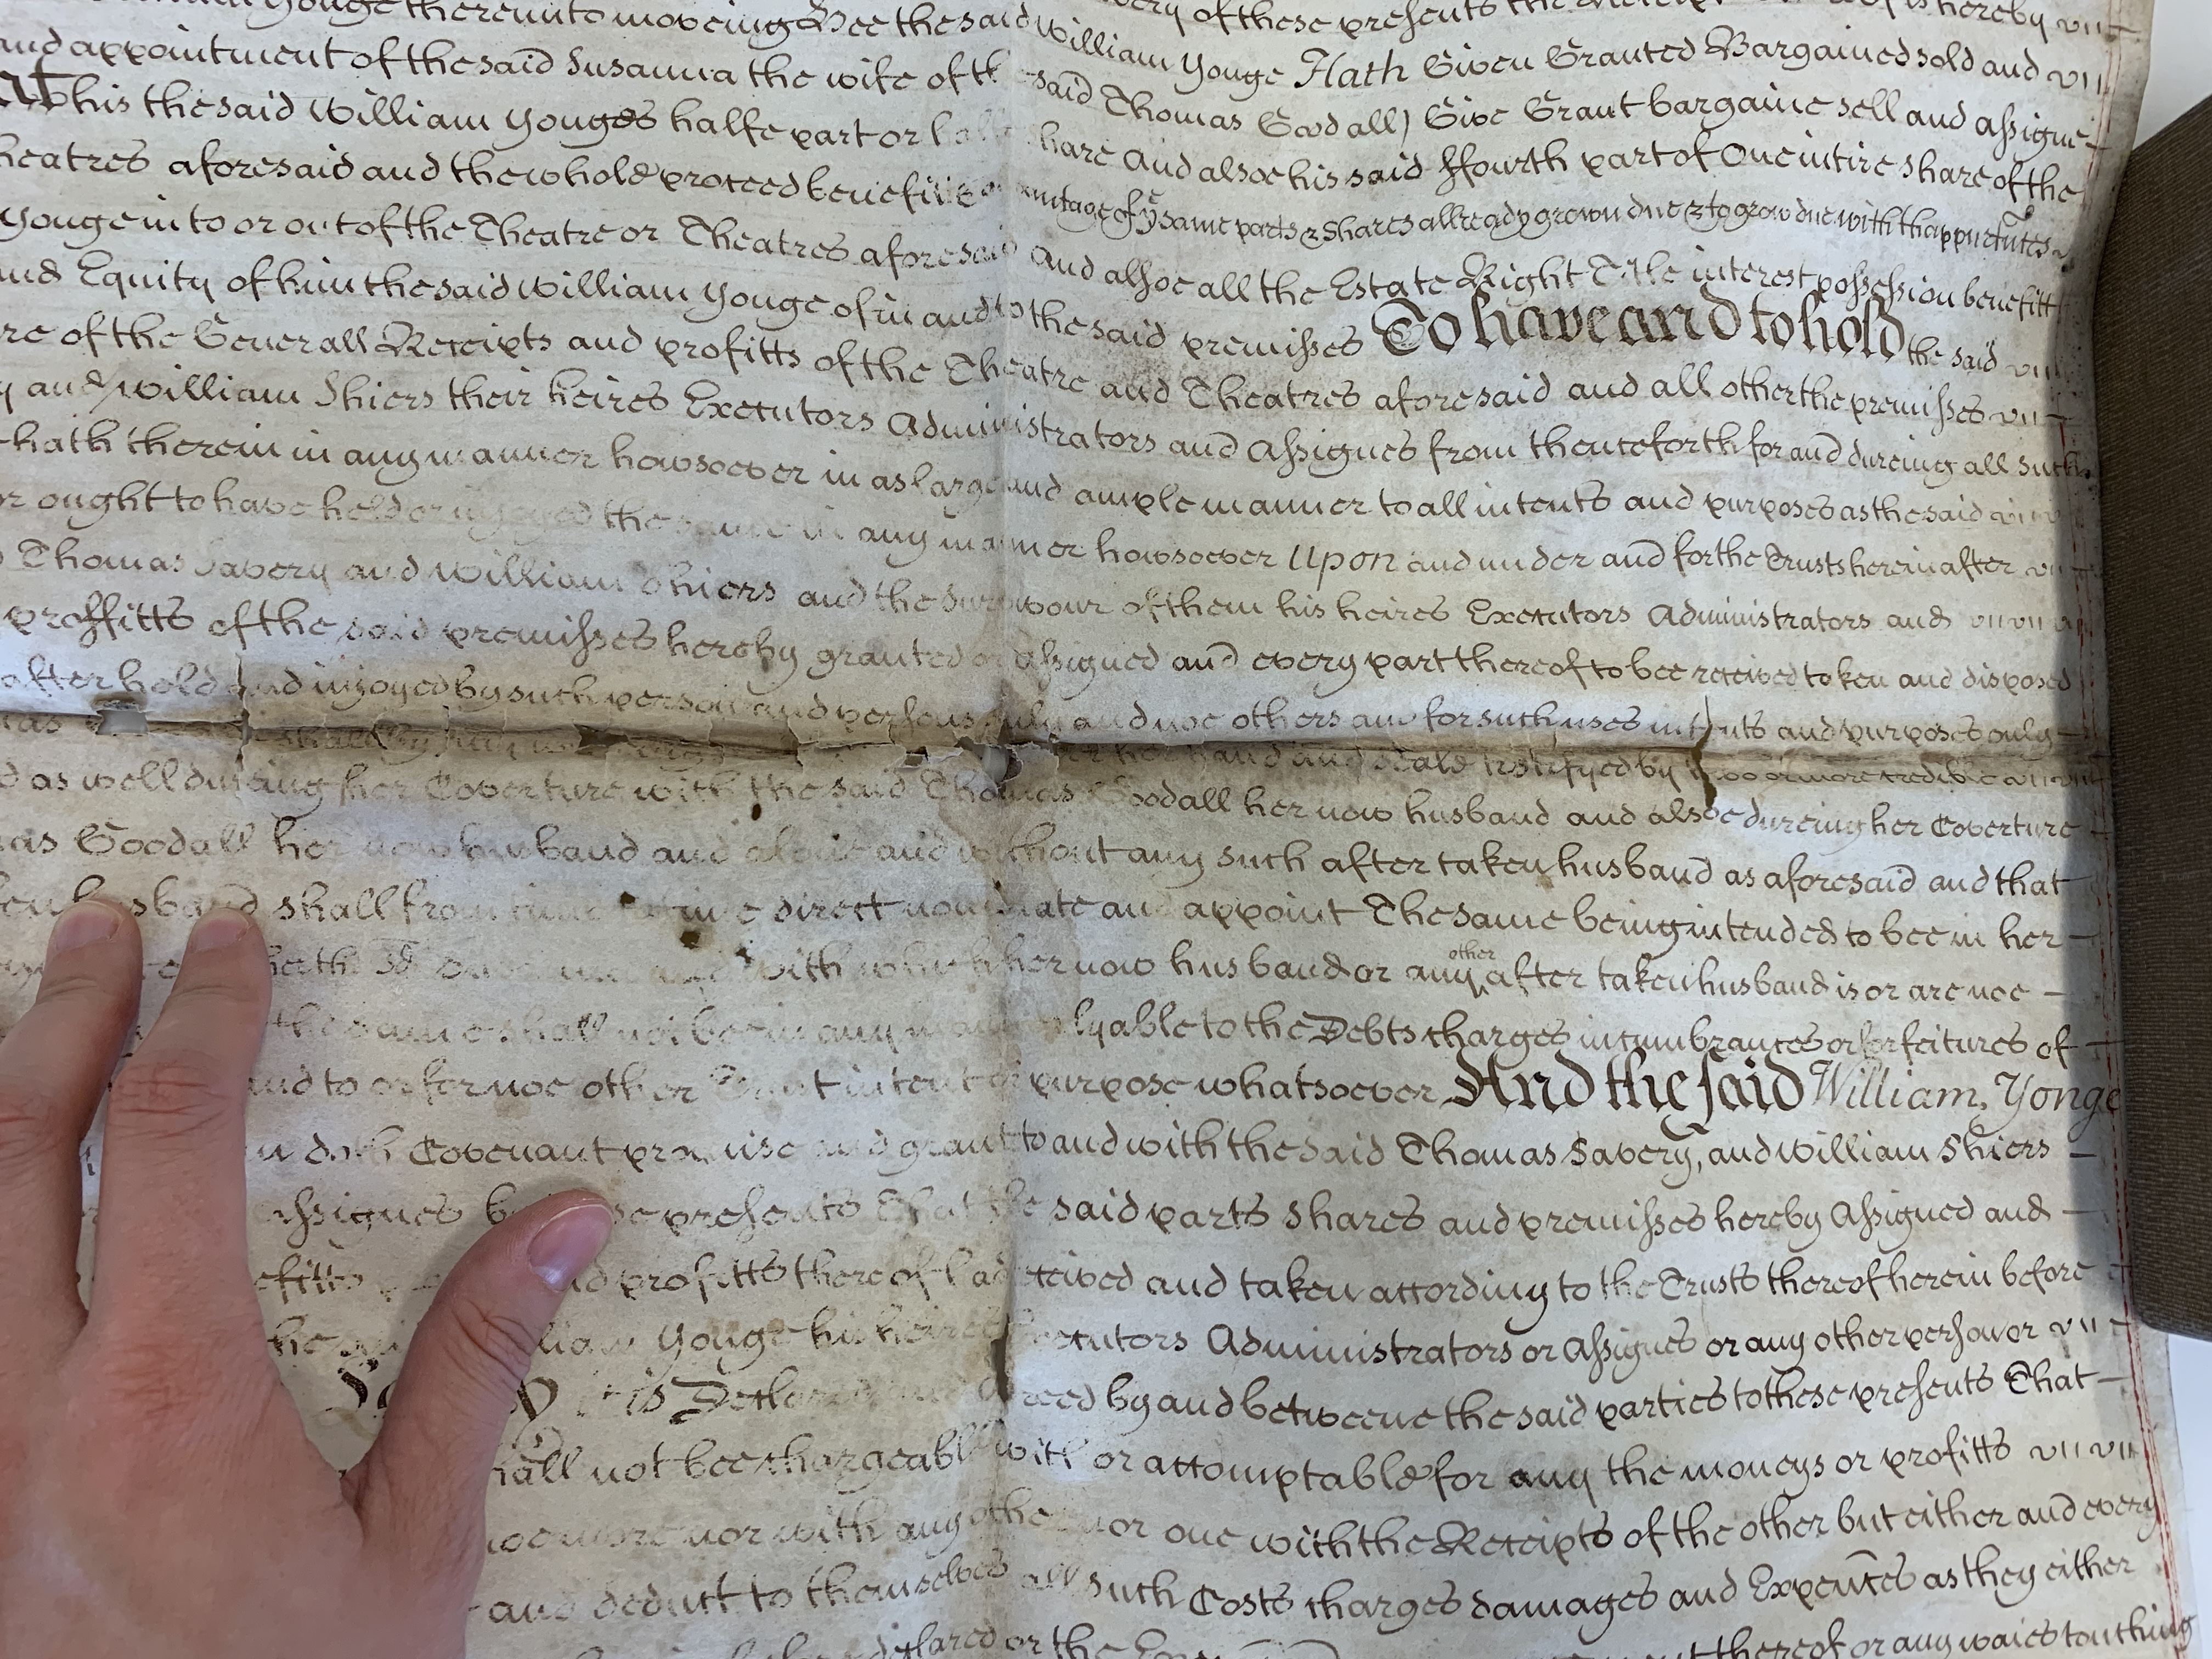 Yonge thereunto moveing Bee the said very of these presents the is hereby
and appointment of the said Susanna the wife of William Yonge Hath Given Granted Bargained sold and
his the said William Yonges halfe part or said Thomas Goodall) Give Grant bargaine sell and assigne
heatres aforesaid and the whole proceed benefitt share And alsoe his said ffourth part of One intire share of the
Yonge in to or out of the Theatre or Theatres aforesaid of yͤ same parts & Shares allready grown due & to grow due with thappurtnces
and Equity of him the said William Yonge of in and to And allsoe all the Estate Right Title interest possession benefitt
re of the Generall Receipts and profitts of the the said premisses To have and to hold the said
and William Shiers their heires Executors Theatre and Theatres aforesaid and all other the premisses
hath therein in any manner howsoever in as large Administrators and Assignes from thenceforth for and dureing all such
or ought to have held or injoyed the same in any and ample manner to all intents and purposes as the said
Thomas Savery and William Shiers and the manner howsoever Upon and under and for the Trusts herein after
proffitts of the said premisses hereby granted survivour of them his heires Executors Administrators and
after hold and injoyed by such person and persons or Assigned and every part thereof to bee received taken and disposed
only and noe others and for such uses intents and purposes only
her hand and Seale testifyed by two or more credible
d as well dureing her Coverture with the said Thomas Goodall her now husband and alsoe dureing her Coverture
as Goodall her now husband and alsoe and without any such after taken husband as aforesaid and that
en husband shall from time to time direct nominate and appoint The same being intended to bee in her
with which her now husband or any other after taken husband is or are noe
the same shall not bee in any lyable to the Debts charges incumbrances or forfeitures of
and to or for noe other Trust intent or purpose whatsoever And the said William, Yonge
doth Covenant promise and grant to and with the said Thomas Savery, and William Shiers
Assignes by presents That the said parts shares and premisses hereby Assigned and
and profitts thereof received and taken according to the Trusts thereof herein before
Yonge his heires Executors Administrators or Assignes or any other person or
is Declared and Agreed by and betweene the said parties to these presents That
shall not bee chargeable with or accomptable for any the moneys or profitts
noe more nor with any other nor one with the Receipts of the other but either and every
and deduct to themselves all such Costs charges damages and Expences as they either
declared or the thereof or any waies touching